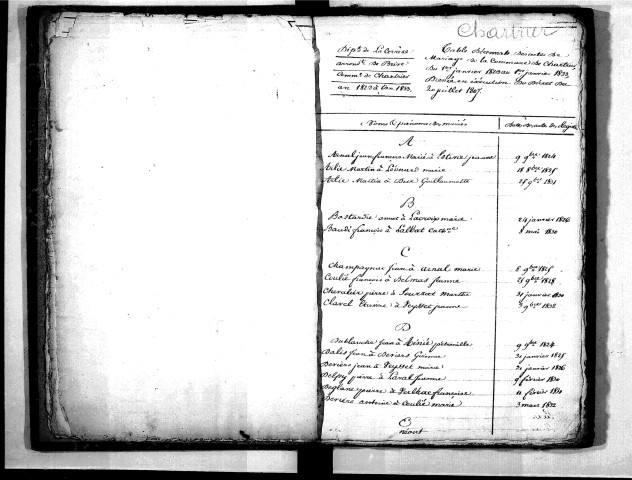 Chartrier
Dépt. de La Corrèze
arrondt. de Brive
commne. de Chartrier
an 1823 à l'an 1833.
Table Décennale des actes de
Mariage de la Commune de Chartrier,
du 1er janvier 1823 au 1er janvier 1833.
Dressée en exécution du Décret du
20 juillet 1807.
Noms & prénoms des mariés
Dates des actes des Registres
A
Arnal jean françois Marié à Estorie jeanne 9 9bre 1824
Arlie Martin à Léonard marie 18 8bre 1825
Arlie Martin à Guillaumette 28 9bre 1831
B
Bastardie annet à Lacroix marie 24 janvier 1826
Baudi françois à Lalbat cathne 8 mai 1830
C
Champagnac jean à arnal marie 8 9bre 1825
Coulié françois à Delmas jeanne 25 9bre 1828
Chevalier pierre à marthe 30 janvier 1830
Clavel Etienne à Veysset jeanne 3 9bre 1832
D
Dublanche jean à pétronille 9 9bre 1824
Dalès jean à 30 janvier 1825
Deviers jean à Veysset marie 30 janvier 1826
Delpy pierre à Laval jeanne 9 février 1830
Deglane pierre à Vielhac françoise 11 février 1830
Deviers antoine à Coulié marie 3 mars 1832
E
néant